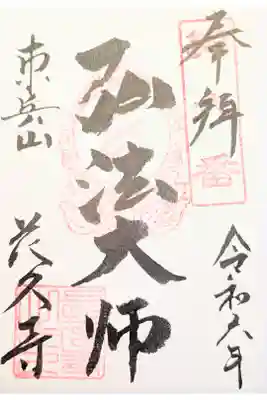 奉拝
令和六年
弘法大師
東岳山
花久寺